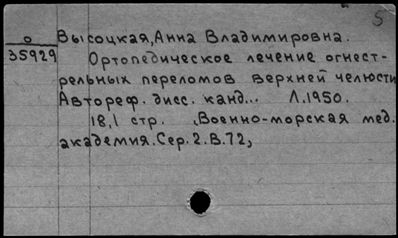 5
о Высоцкая, Анна Владимировна.
35929 Ортопедическое лечение огнест-
рельных переломов верхней челюсти
Автореф. дисс. канд... Л.1950.
18,1 стр. Военно-морская мед.
академия. Сер. 2. В. 72,